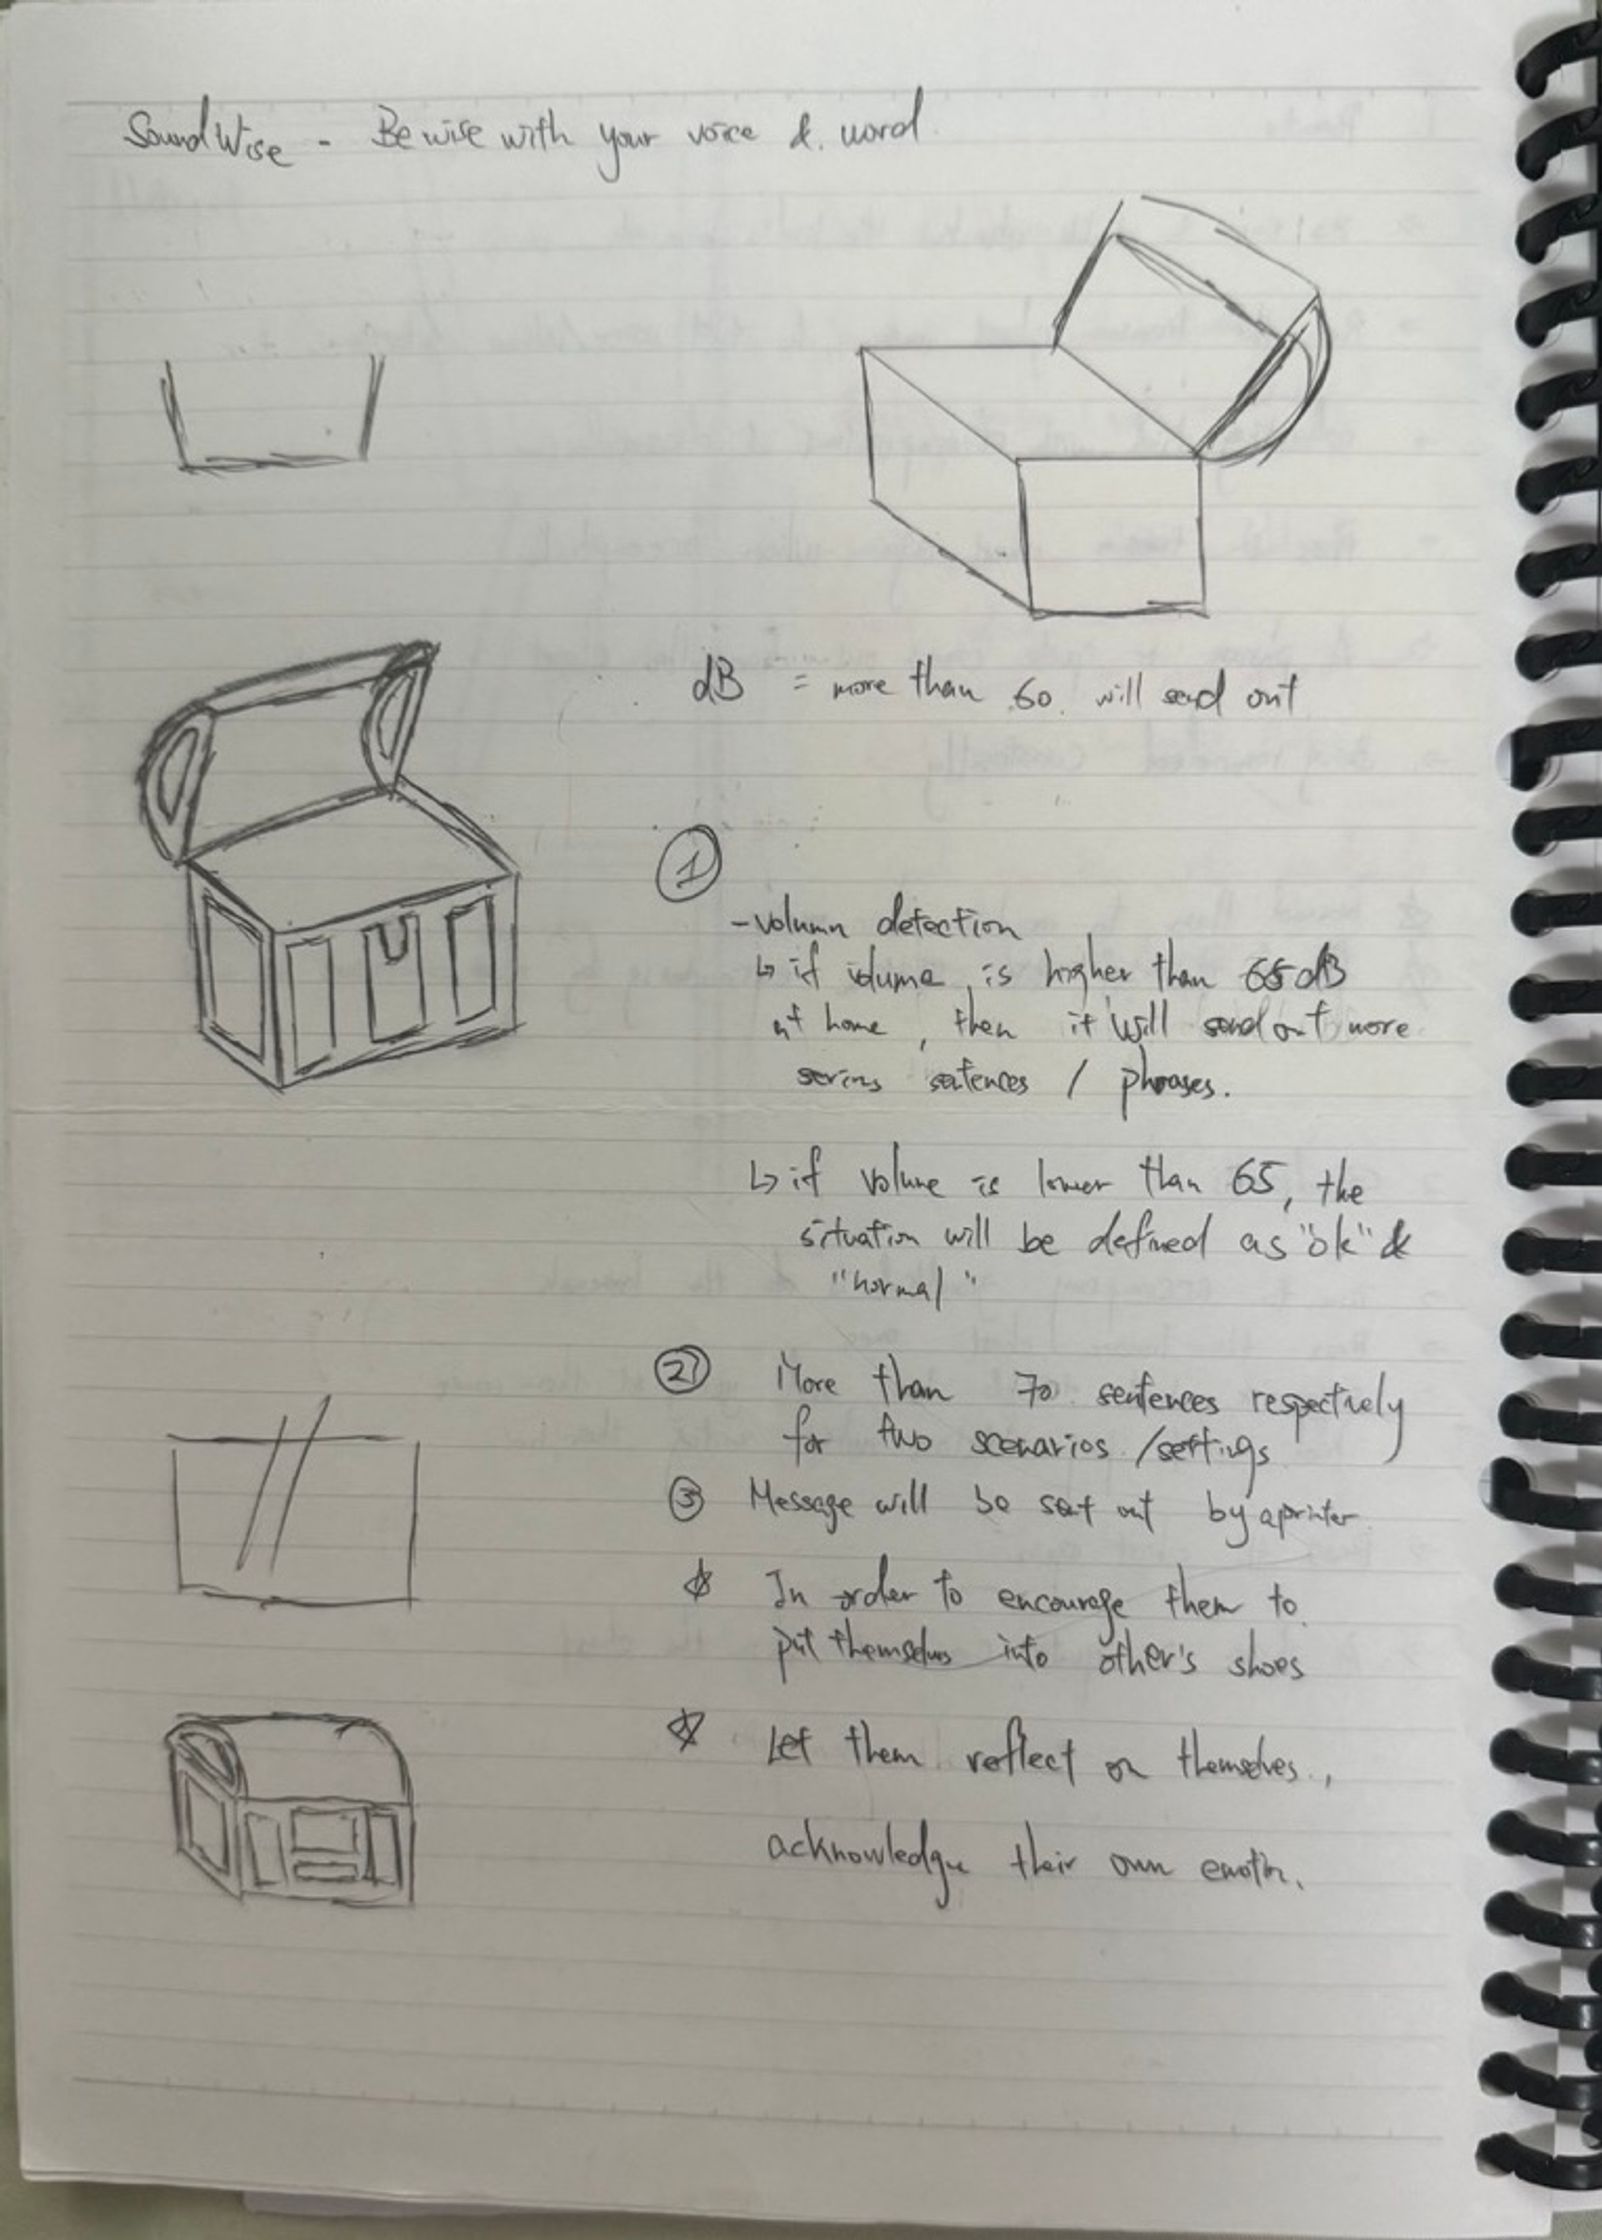 SoundWise - Be wise with your voice &. word
dB = more than 60. will send out
①
- volumn detection
↳ if volume is higher than 65 dB
at home, then it will send out more
serious sentences / phrases.
↳ if volume is lower than 65, the
situation will be defined as "ok" &
"normal"
② More than 70 sentences respectively
for two scenarios / settings
③ Message will be sent out by a printer
☆ In order to encourage them to
put themselves into other's shoes
☆ Let them reflect on themselves,
acknowledge their own emotion.